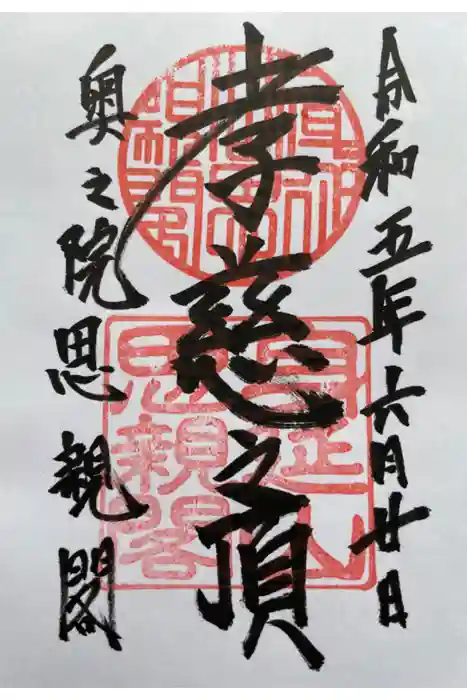 令和五年六月廿日
孝慈之頂
奥之院思親閣
身延山
思親閣